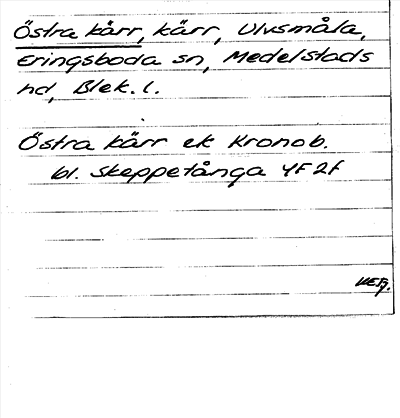 Östra kärr, kärr, Ulvsmåla,
Eringsboda sn, Medelstads
hd, Blek. l.
Östra kärr ek Kronob.
bl. Skeppetånga 4F2f